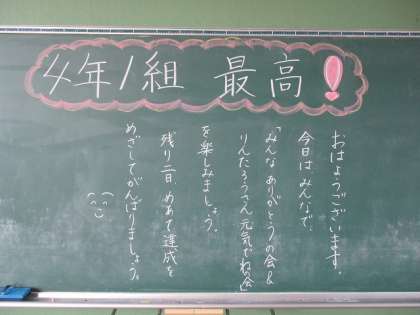 4年1組 最高!
おはようございます。
今日は、みんなで、
「みんなありがとうの会&
りんたろうさん元気でね会」
を楽しみましょう。
残り二日 めあて達成を
めざしてがんばりましょう。